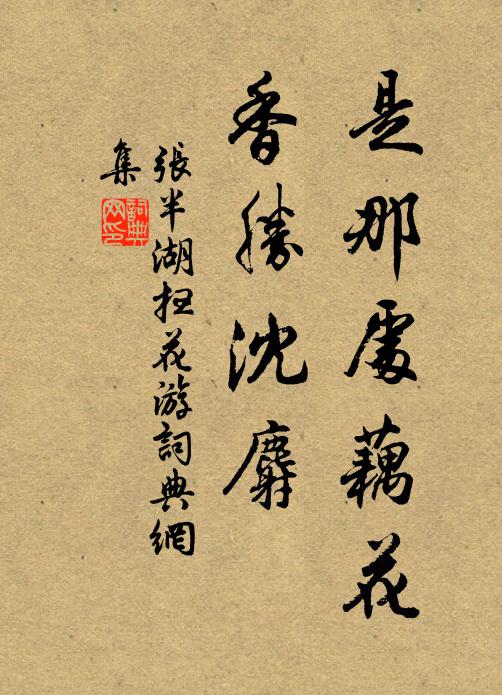 是那處藕花
香勝沈麝
張半湖扫花游詞典網
集
詞典
网印